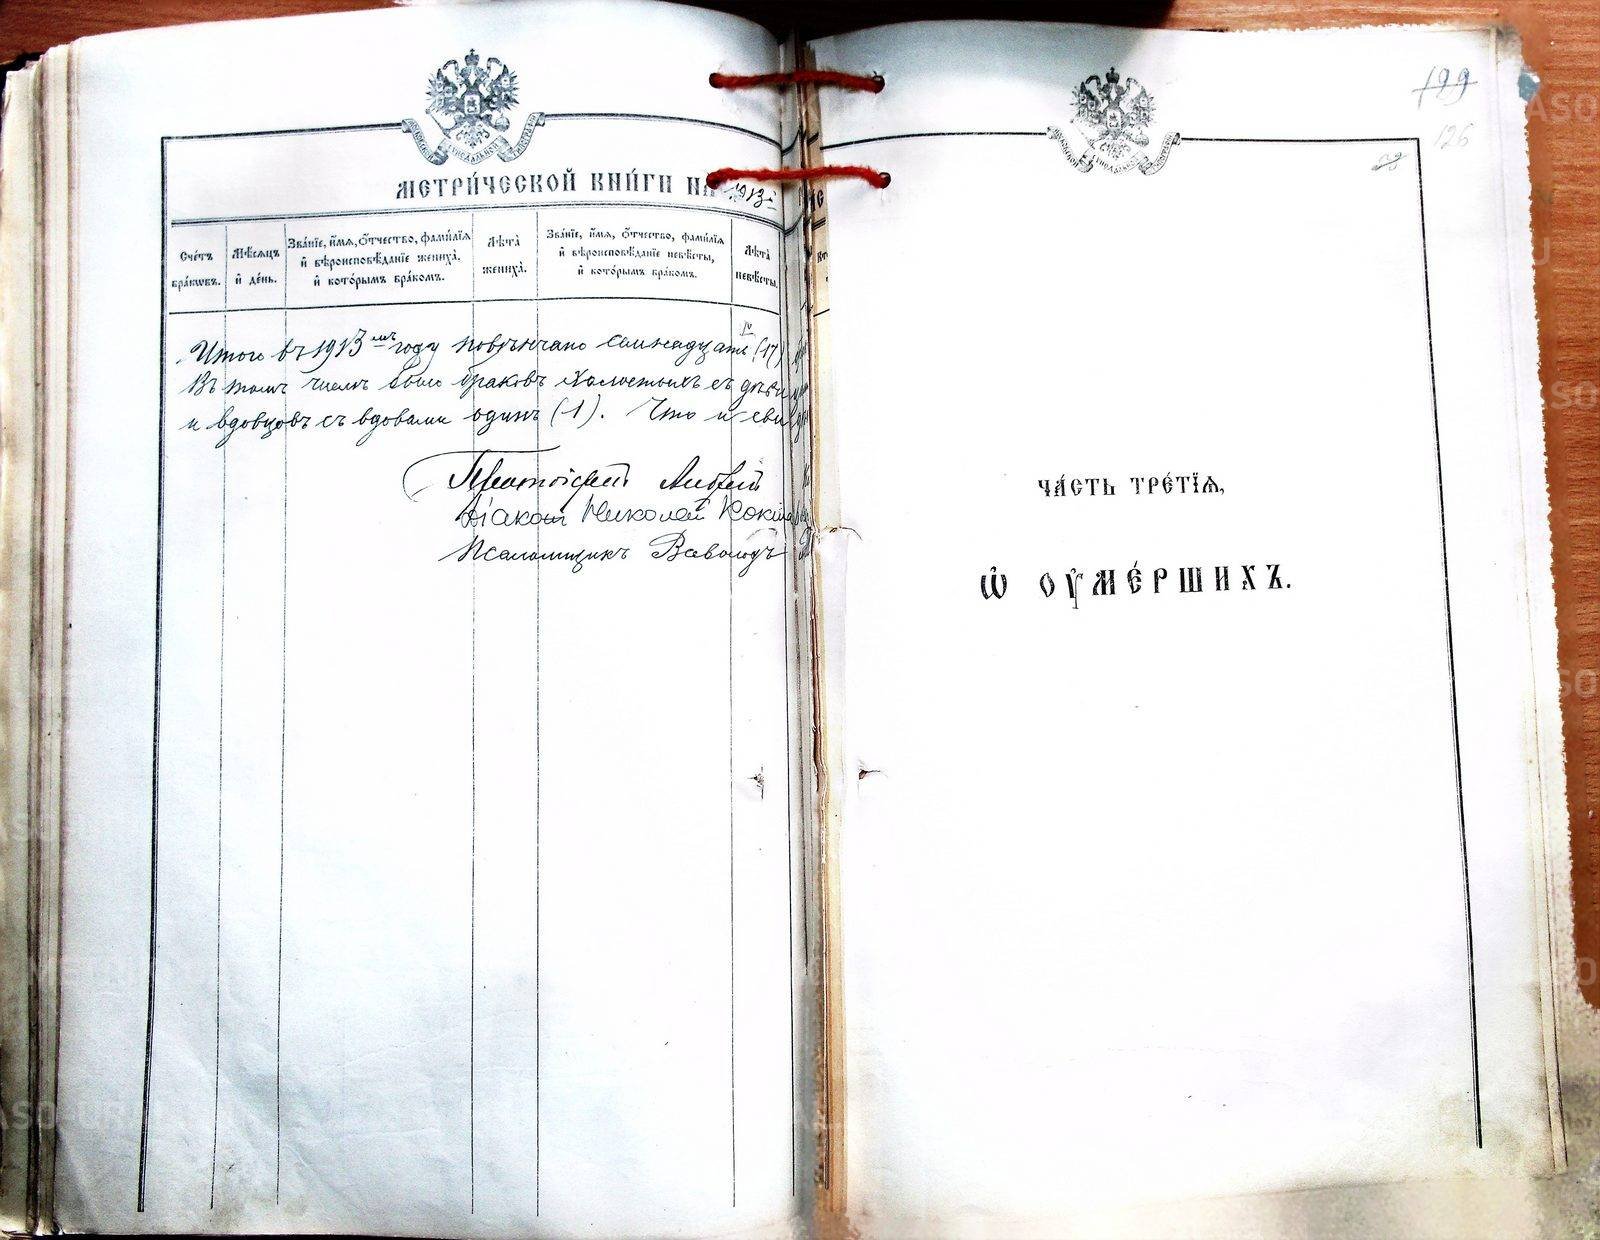 МЕТРИ́ЧЕСКОЙ КНИ́ГИ НА 1913 г.
Сче́тъ бра́кѡвъ.
Мѣ́сѧцъ и҆ де́нь.
Зва́нїе, и҆́мѧ, ѻ҆́тчество, фами́лїѧ
и҆ вѣроисповѣ́данїе жениха̀,
и҆ кото́рымъ бра́комъ.
Лѣ́та жениха̀.
Зва́нїе, и҆́мѧ, ѻ҆́тчество, фами́лїѧ
и҆ вѣроисповѣ́данїе невѣ́сты,
и҆ кото́рымъ бра́комъ.
Лѣ́та невѣ́сты.
Итого въ 1913мъ году повѣнчано семнадцать (17)
Въ томъ числѣ было браковъ холостыхъ съ дѣви
и вдовцовъ съ вдовами одинъ (1). Что и сви
Протоіерей Андрей
Діаконъ Николай Кокша
Псаломщикъ Всеволодъ
199
126
ЧА́СТЬ ТРЕ́ТЇѦ,
Ѡ҆ ОУ҆МЕ́РШИХЪ.